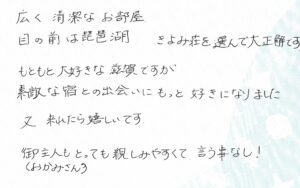 広く 清潔な お部屋
目の前は琵琶湖 きよみ荘を選んで大正解です
もともと大好きな 滋賀ですが
素敵な宿との出会いに もっと 好きになりました
又 来れたら嬉しいです
御主人もとっても親しみやすくて 言う事なし!
(おかみさんも)